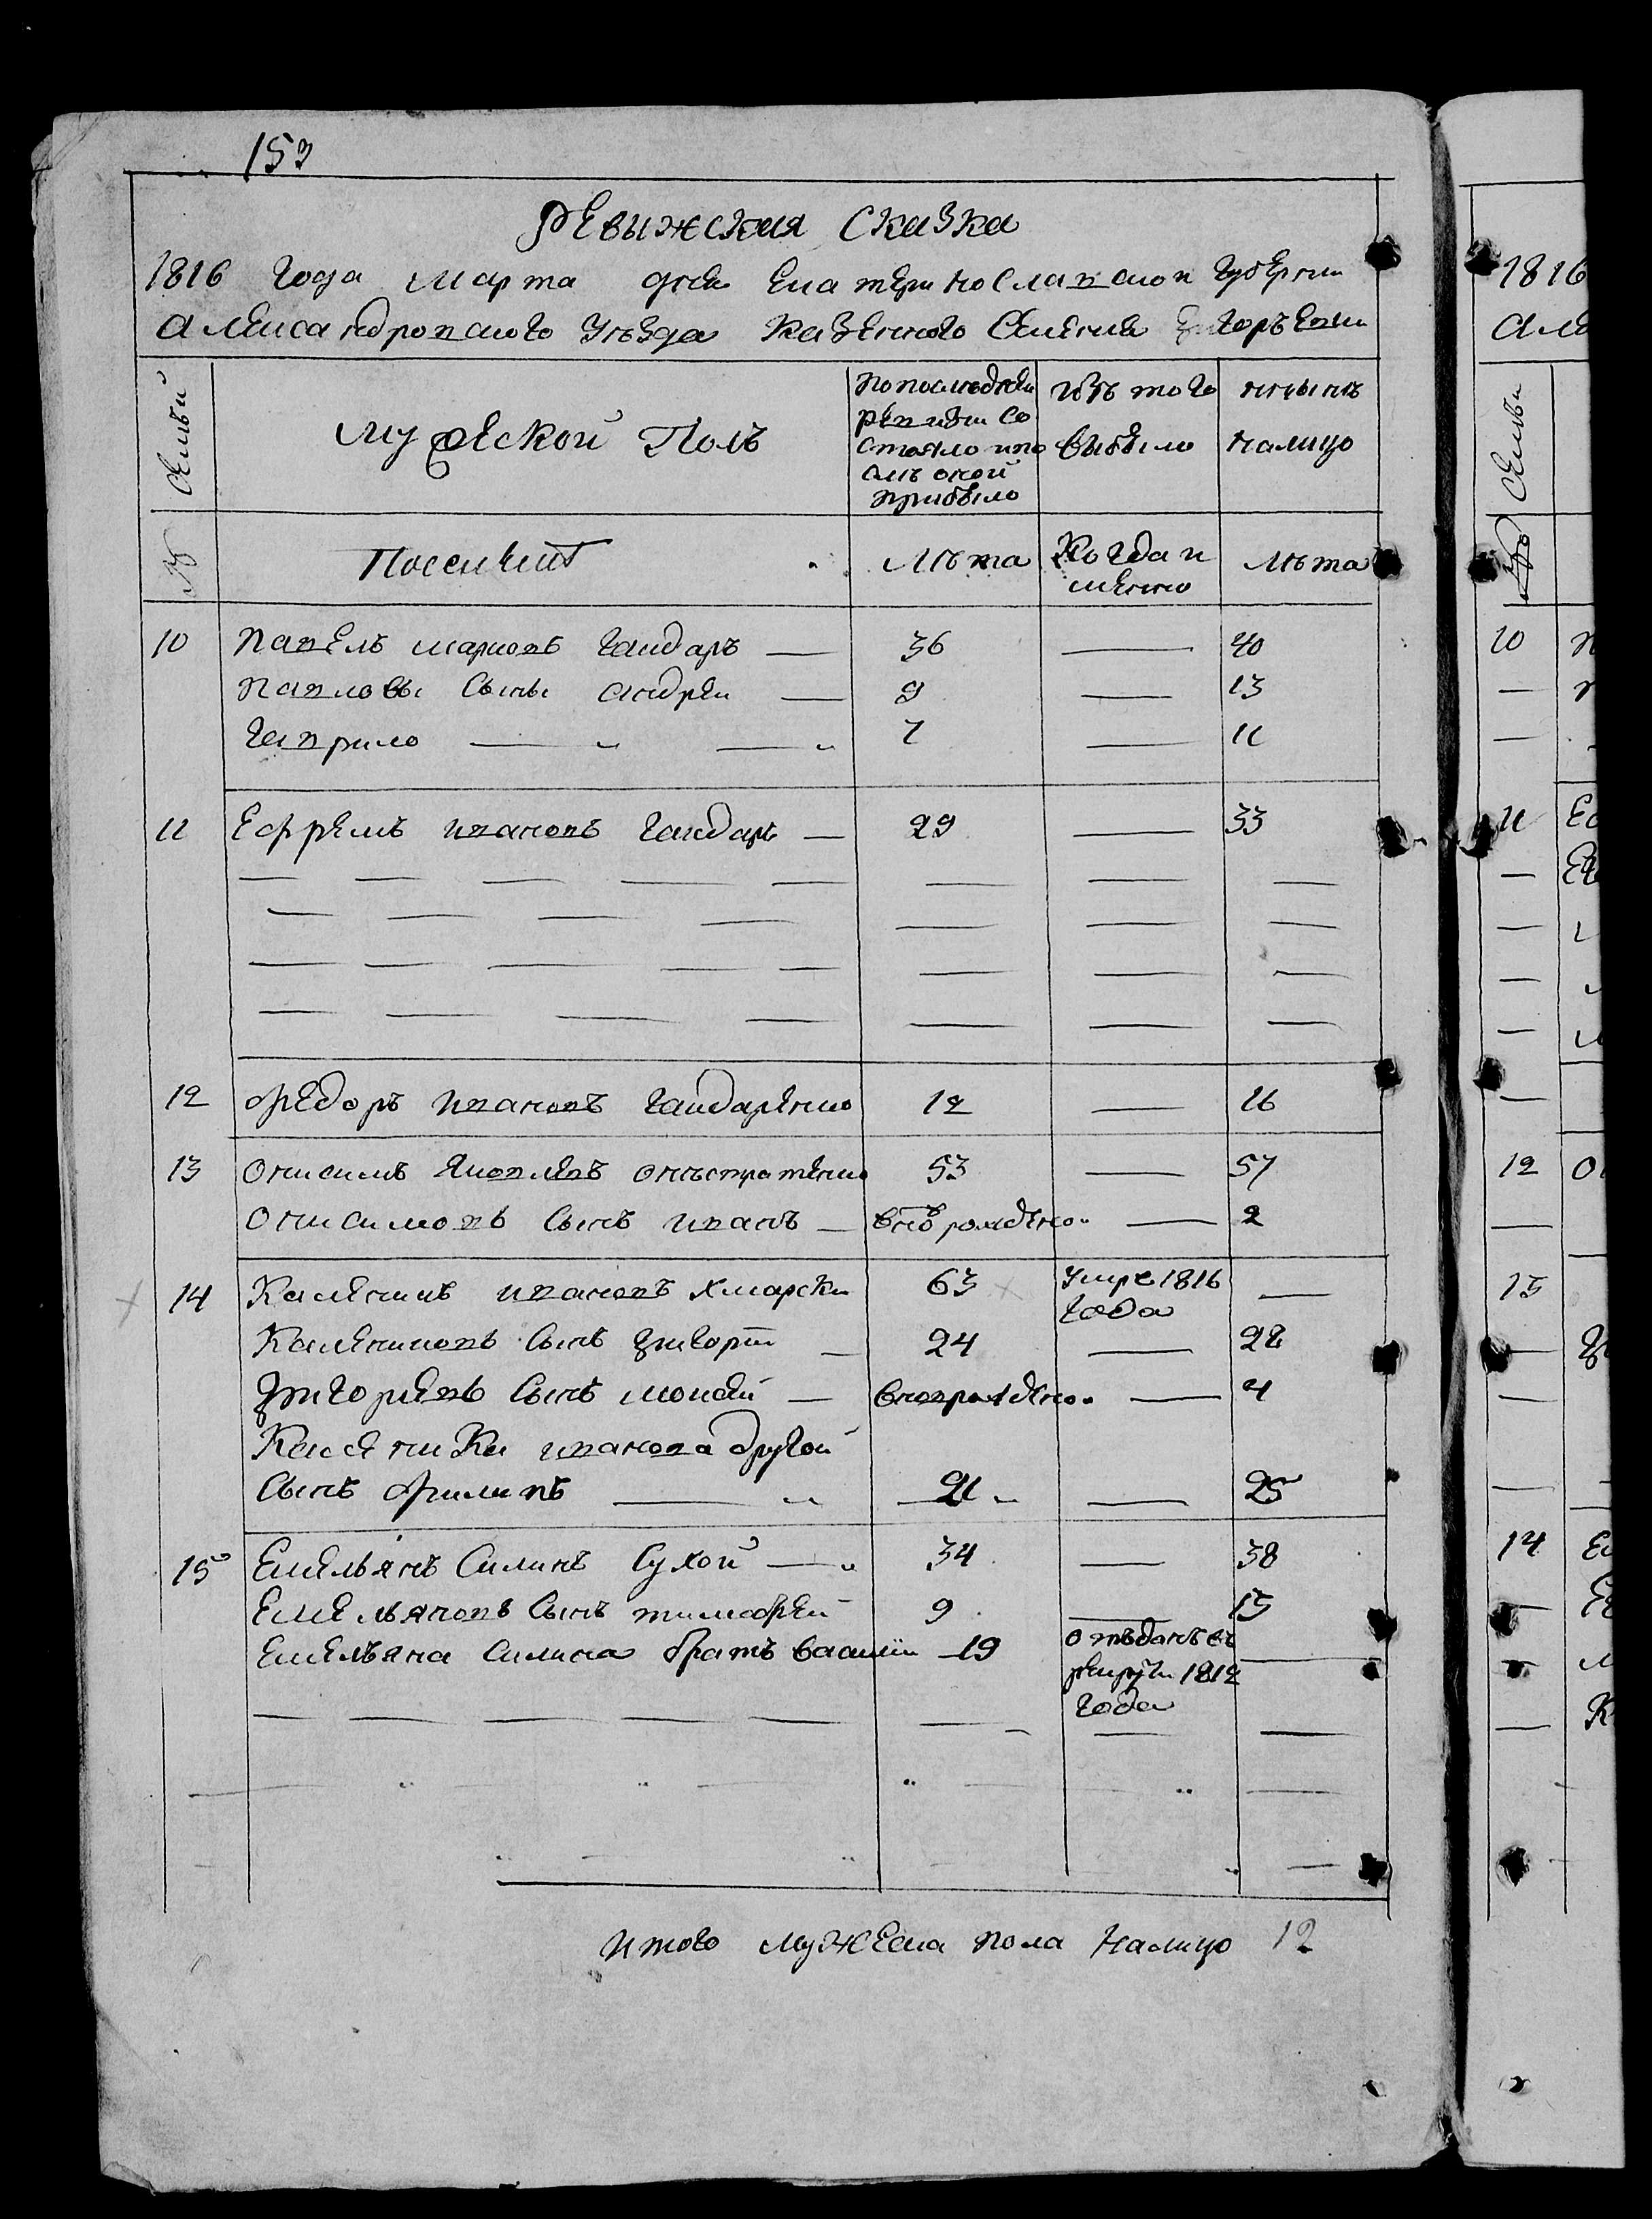 153
Ревижская Сказка
1816 Года Марта дня Екатеринославской Губернии
Александровского Уезда Казенного Селения
Семьи
Мужеской Полъ
По последней ревизии состояло и после оной прибыло
Изъ того выбыло
ныне налицо
№
Лѣта
Когда именно
Лѣта
10 Павелъ Марковъ Гайдаръ — 36 — 40
Павловы Сыны Андрей — 9 — 13
Гаврило — „ — „ 7 — 11
11 Ефремъ Ивановъ Гайдаръ — 29 — 33
12 Федоръ Ивановъ Гайдаренко 12 — 16
13 Онисимъ Яковлевъ 53 — 57
Онисимовъ Сынъ Иванъ — вновьрожденой — 2
14 Каленикъ Ивановъ Хмарски 63 Умре 1816 Года —
Калениковъ Сынъ Григорий — 24 — 28
Григориевъ Сынъ Мокей — вноврожденой — 4
Каленика Иванова другой
Сынъ Филипъ — „ — 21 „ — 25
15 Емельянъ Силинъ Сухой — „ 34 — 38
Емельяновъ Сынъ Тимофей 9 — 13
Емельяна Силина братъ Василий — 19 отъданъ въ рекруты 1812 Года —
Итого Мужеска пола Налицо 12
1816
Але
Семьи
№
10 П
—
—
11 Е
—
—
—
—
—
12 О
—
13
—
—
—
14 Е
—
—
—